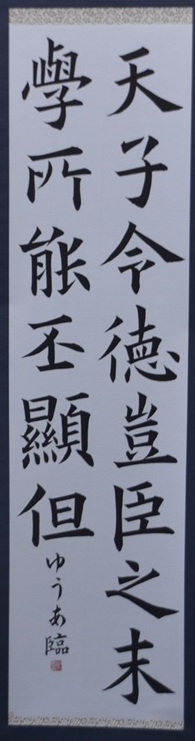 天子令徳豈臣之末
學所能丕顯但
ゆうあ臨